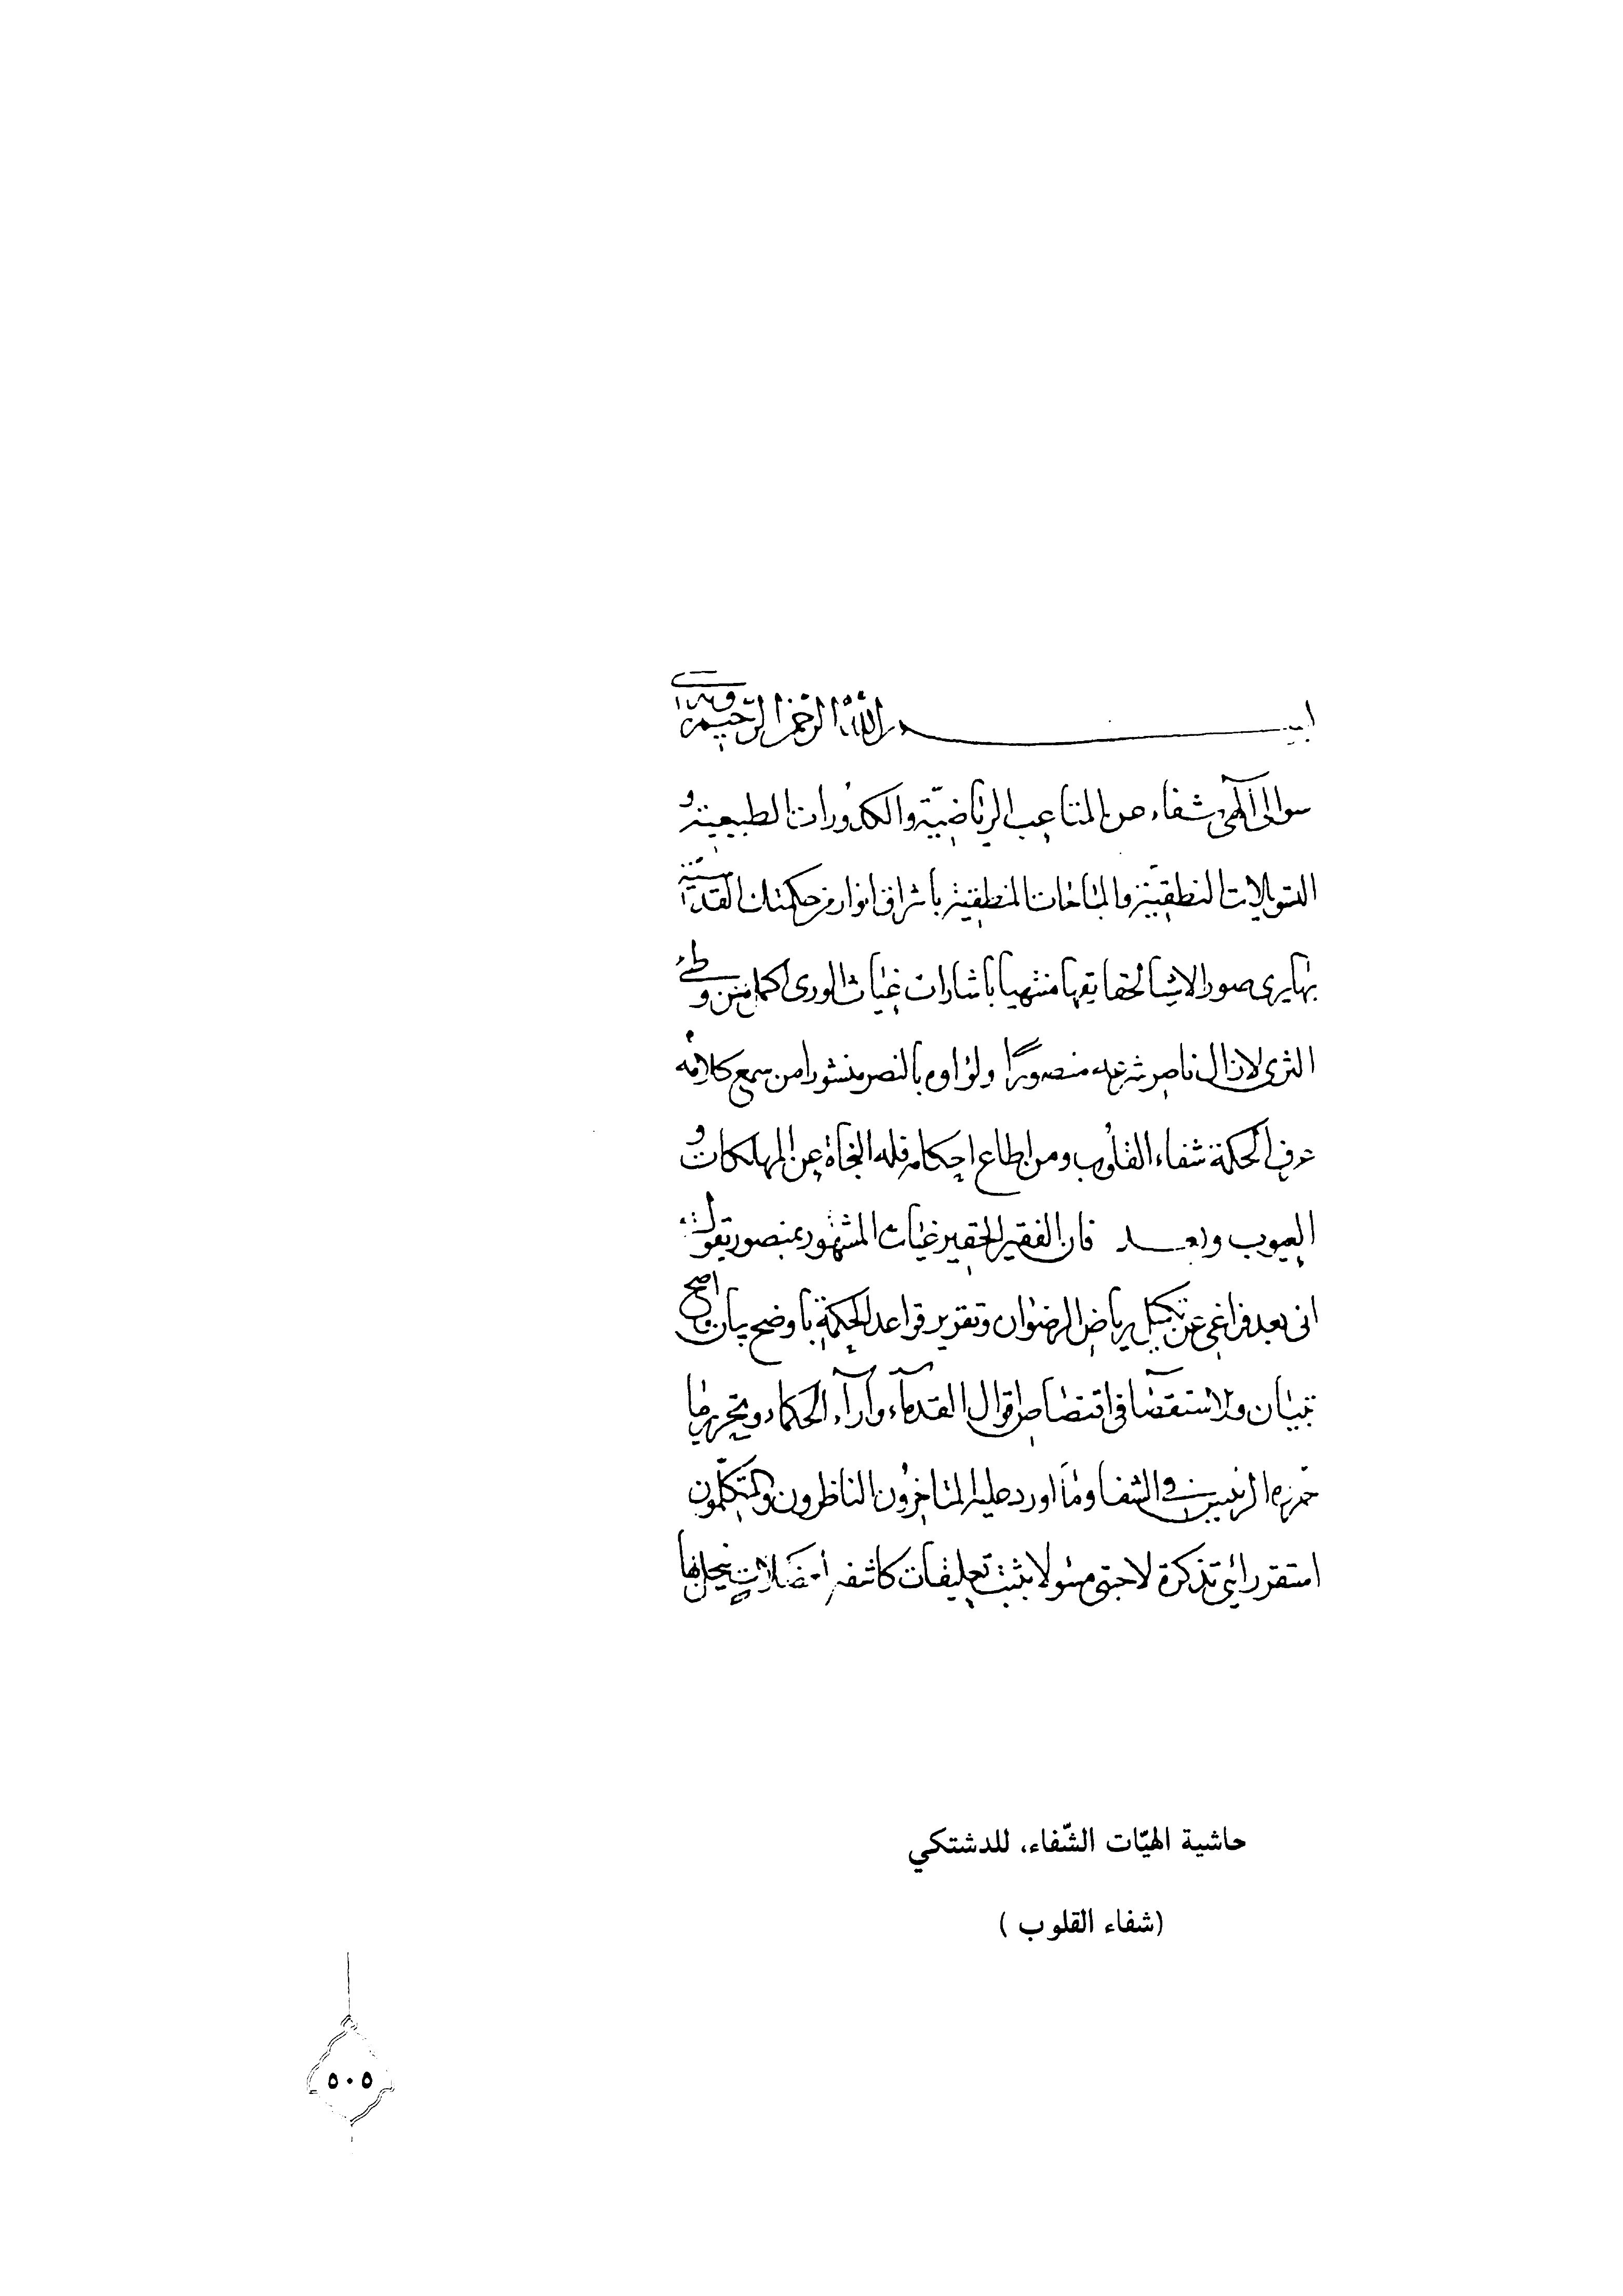 بسم الله الرحمن الرحيم
سوالى الهى شفاء عن المتاعب الرياضية والكدورات الطبيعية و
النطقية والمباحثات المنطقية باشراق انوار من حكمتك القدسية
بها يرى صور الاشيا لحقايقها منتهيا باشارات غياث الورى اكمل من وطئ
الثرى لازال ناصر شرعه منصورا ولواوه بالنصر منشورا من سمع كلامه
عرف الحكمة شفاء القلوب ومن اطاع احكامه فله النجاة عن المهلكات و
العيوب وبعد فان الفقير الحقير غياث المشهور بمنصور يقول
انى بعد فراغى عن تكميل رياض الرضوان وتقرير قواعد الحكمة باوضح بيان واصح
تبيان والاستقصا فى اقتصاص اقوال القدماء وآراء الحكماء وتحرير ما
حرره الرئيس فى الشفا وما اورد عليه المتاخرون الناظرون والمتكلمون
استقر رائى تذكرة لاحبتى مسئولا بثبت تعليقات كاشفة
حاشية الهيّات الشّفاء، للدشتكي
(شفاء القلوب)
٥٠٥